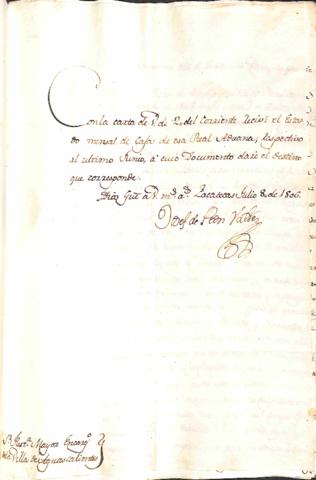 Con la carta de V. de 2. del corriente recivi el Esta-
do mensal de Caja de esa Real Aduana, respectivo
al ultimo Junio, a cuio Documento daré el destino
que corresponde.
Dios gue a V. ms. as. Zacatecas Julio 8, de 1806.
Josef de Leon Valdes
Mayor Encarg.
de la Villa de Aguascalientes